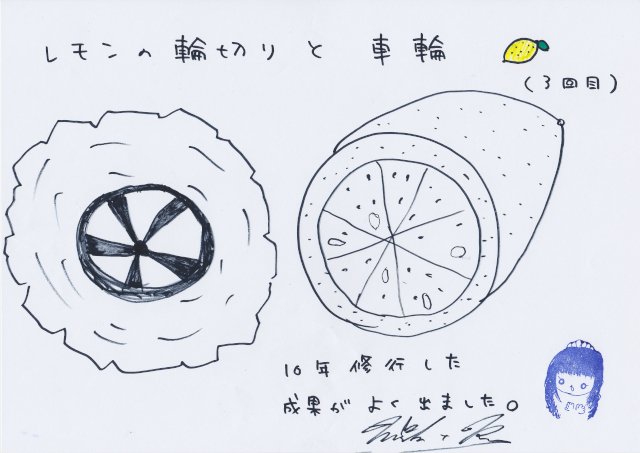 レモンの輪切りと車輪
(3回目)
10年修行した
成果がよく出ました。